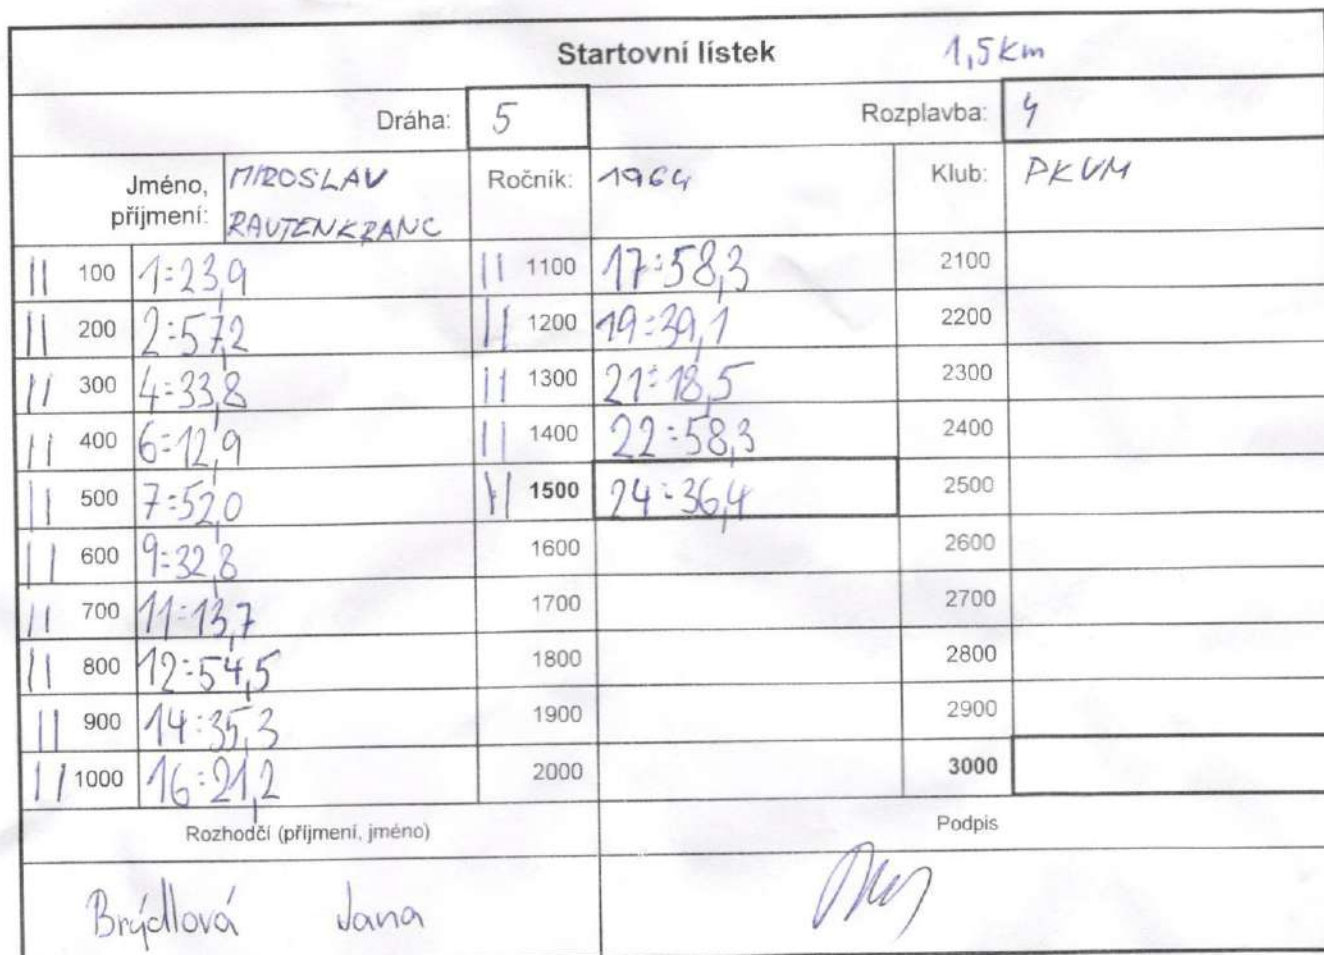 Startovní lístek 1,5km
Dráha: 5 Rozplavba: 4
Jméno, příjmení: MIROSLAV RAUTENKRANC Ročník: 1964 Klub: PKVM
|| 100 1:23,9 || 1100 17:58,3 2100
|| 200 2:57,2 || 1200 19:39,1 2200
|| 300 4:33,8 || 1300 21:18,5 2300
|| 400 6:12,9 || 1400 22:58,3 2400
|| 500 7:52,0 || 1500 24:36,4 2500
|| 600 9:32,8 1600 2600
|| 700 11:13,7 1700 2700
|| 800 12:54,5 1800 2800
|| 900 14:35,3 1900 2900
|| 1000 16:21,2 2000 3000
Rozhodčí (příjmení, jméno) Podpis
Brýdlová Jana